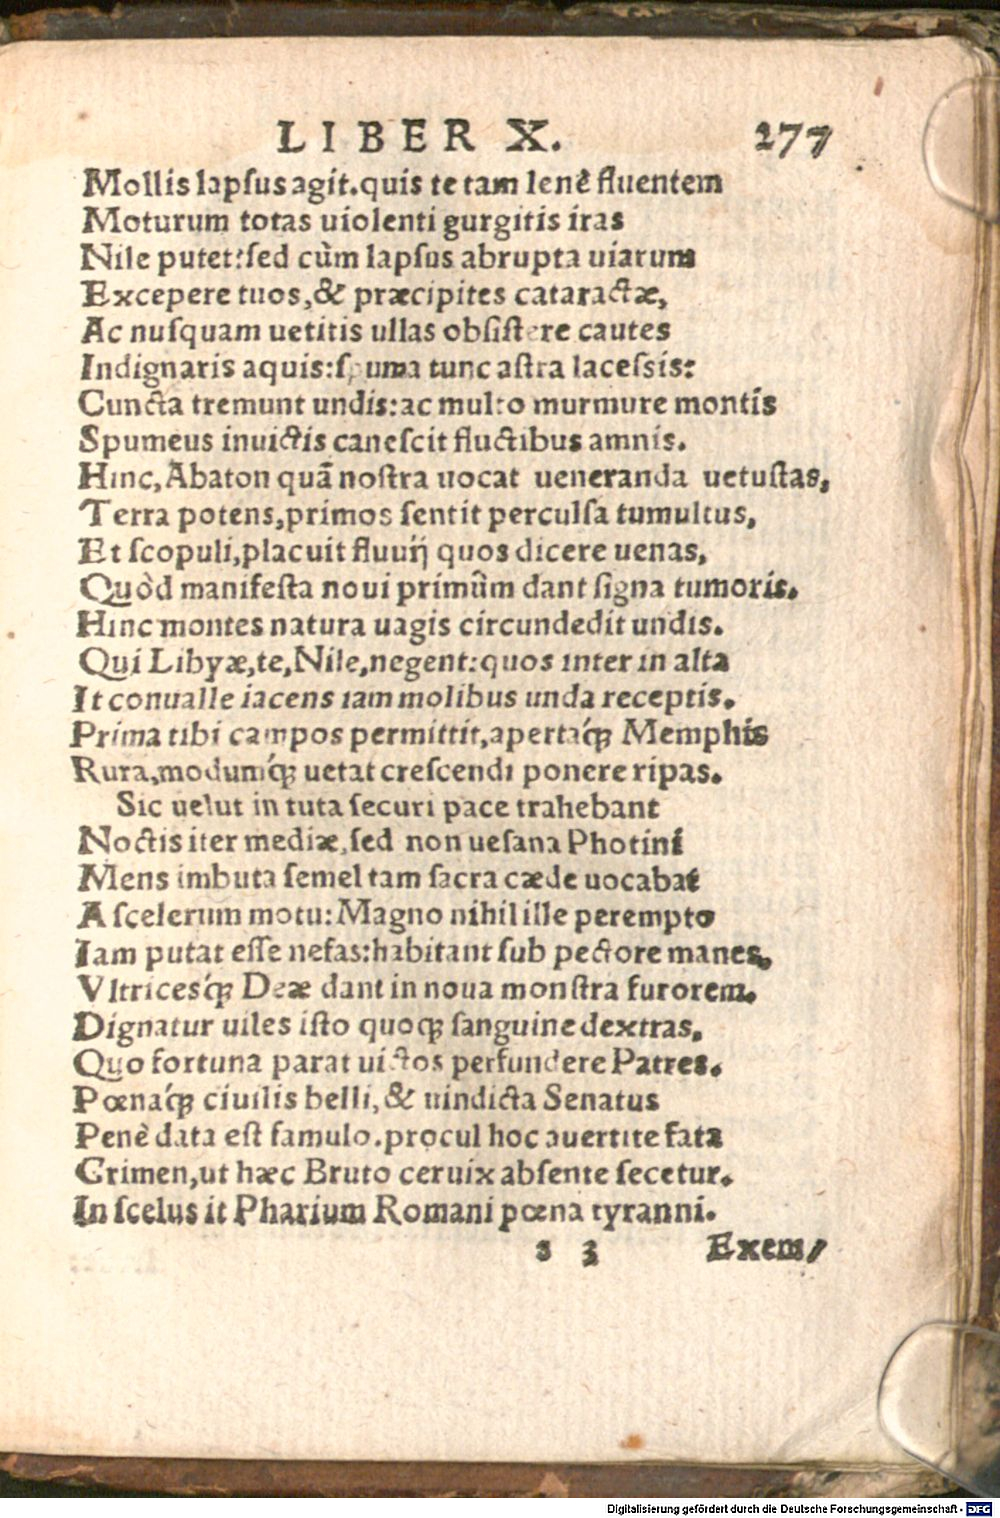 LIBER X. 277
Mollis lapsus agit. quis te tam lenè fluentem
Moturum totas uiolenti gurgitis iras
Nile putet: sed cùm lapsus abrupta uiarum
Excepere tuos, & præcipites cataractæ,
Ac nusquam uetitis ullas obsistere cautes
Indignaris aquis: spuma tunc astra lacessis:
Cuncta tremunt undis: ac multo murmure montis
Spumeus inuictis canescit fluctibus amnis.
Hinc, Abaton quã nostra uocat ueneranda uetustas,
Terra potens, primos sentit perculsa tumultus,
Et scopuli, placuit fluuij quos dicere uenas,
Quòd manifesta noui primûm dant signa tumoris.
Hinc montes natura uagis circundedit undis.
Qui Libyæ, te, Nile, negent: quos inter in alta
It conualle iacens iam molibus unda receptis.
Prima tibi campos permittit, apertaq́; Memphis
Rura, modumq́; uetat crescendi ponere ripas.
Sic uelut in tuta securi pace trahebant
Noctis iter mediæ, sed non uesana Photini
Mens imbuta semel tam sacra cæde uocabat
A scelerum motu: Magno nihil ille perempto
Iam putat esse nefas: habitant sub pectore manes,
Vltricesq́; Deæ dant in noua monstra furorem.
Dignatur uiles isto quoq; sanguine dextras,
Quo fortuna parat uictos perfundere Patres.
Pœnaq́; ciuilis belli, & uindicta Senatus
Penè data est famulo. procul hoc auertite fata
Crimen, ut hæc Bruto ceruix absente secetur.
In scelus it Pharium Romani pœna tyranni.
s 3 Exem/
Digitalisierung gefördert durch die Deutsche Forschungsgemeinschaft - DFG